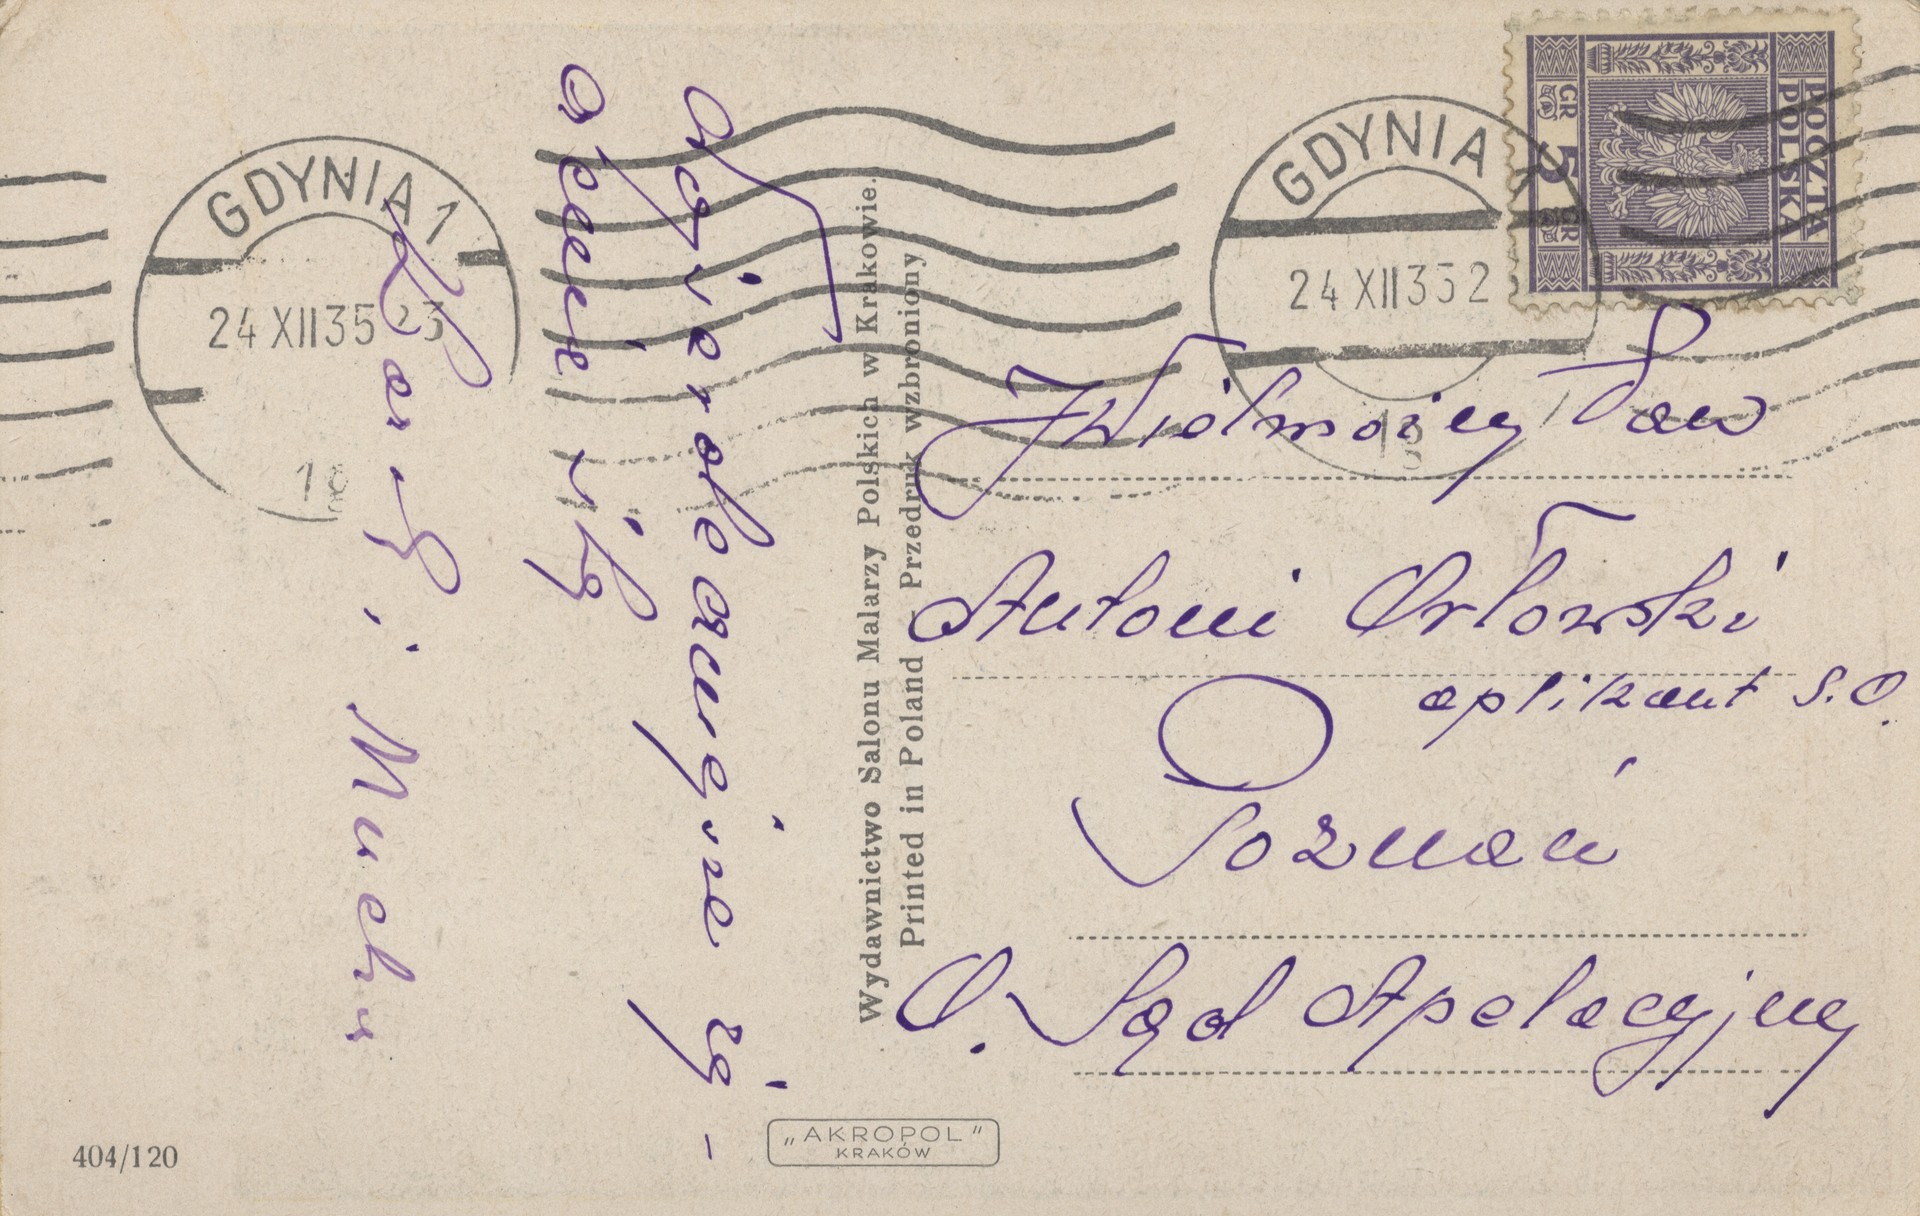 GDYNIA 1
24 XII 35 23
18
GDYNIA 1
24 XII 35 2
18
POCZTA
POLSKA
GR 5 GR
Najserdeczniejsze ży-
czenia
Wydawnictwo Salonu Malarzy Polskich w Krakowie.
Printed in Poland Przedruk wzbroniony
JWielmożny Pan
Antoni Orłowski
aplikant S.O.
Poznań
O. Sąd Apelacyjny
„AKROPOL"
KRAKÓW
404/120